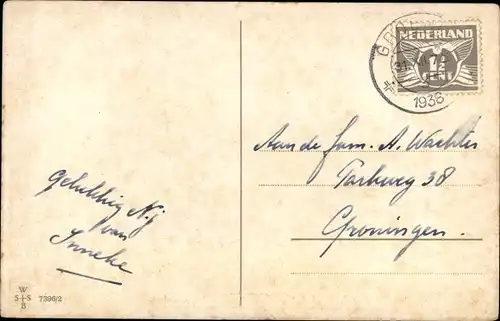 NEDERLAND
1½
CENT
31
1936
Aan de fam. A. Wachter
Parkweg 38
Groningen.
Gelukkig N.j.
van
Ineke
W
S S
B
7396/2